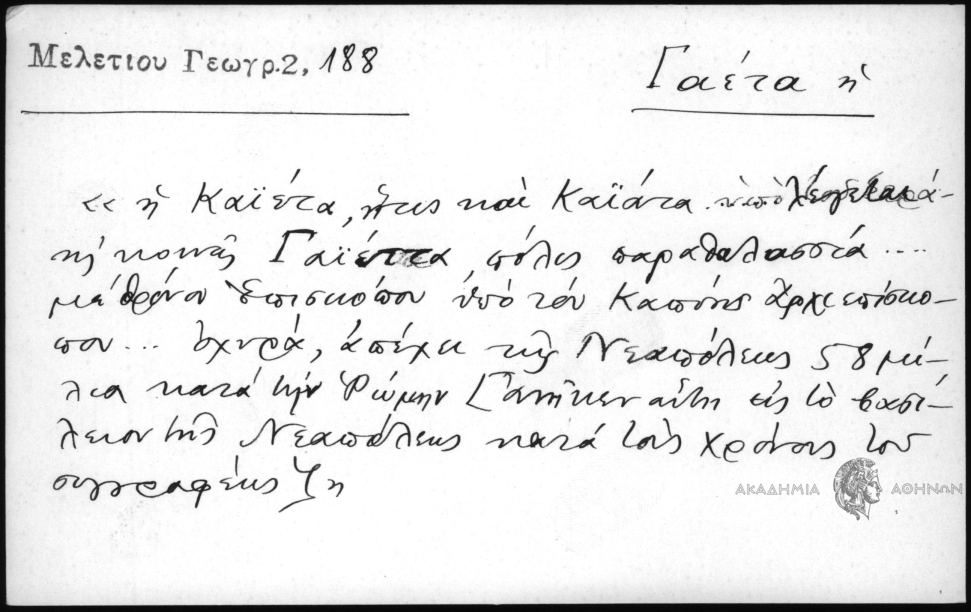 Μελετίου Γεωγρ.2, 188
Γαέτα ἡ
« ἡ Καϊέτα, ἥτις καὶ Καϊάτα λέγεται
κοινῶς Γαϊέττα, πόλις παραθαλασσία ....
μὲ θρόνον Ἐπισκόπου ὑπὸ τὸν Καπύης Ἀρχιεπίσκο-
πον ... ὀχυρά, ἀπέχει τῆς Νεαπόλεως 58 μί-
λια κατὰ τὴν Ῥώμην [ἀνῆκεν αὕτη εἰς τὸ βασί-
λειον τῆς Νεαπόλεως κατὰ τοὺς χρόνους τοῦ
συγγραφέως
ΑΚΑΔΗΜΙΑ ΑΘΗΝΩΝ